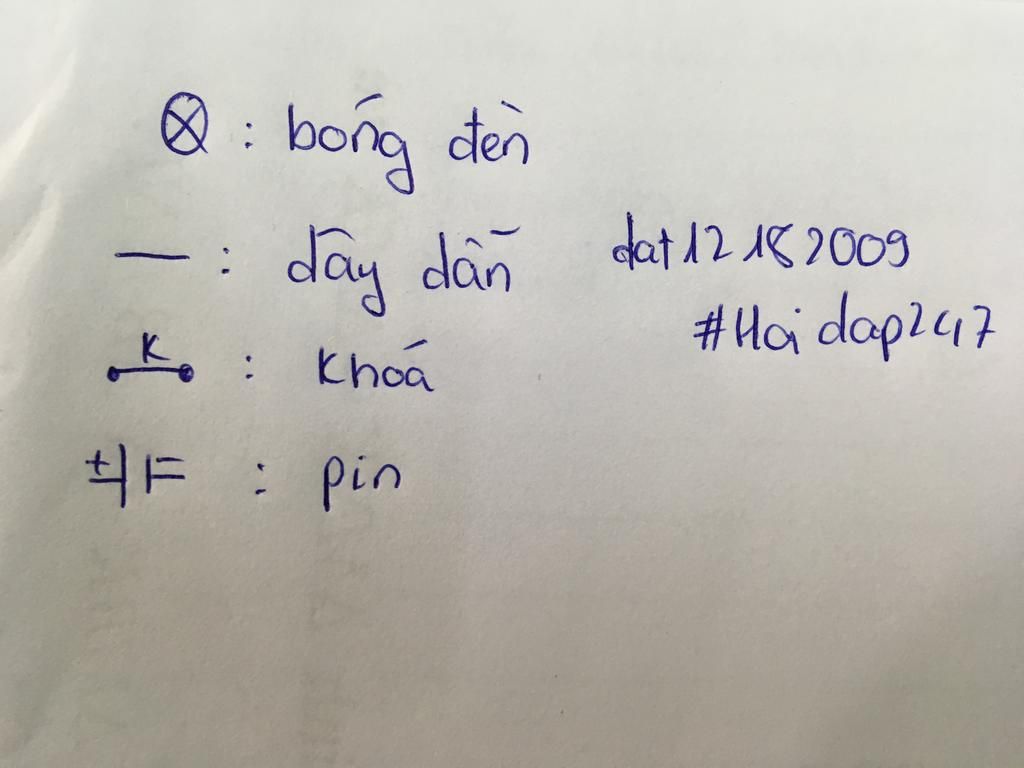 : bóng đèn
— : dây dẫn
dat12182009
K : khoá
#Hoidap247
+ - : pin